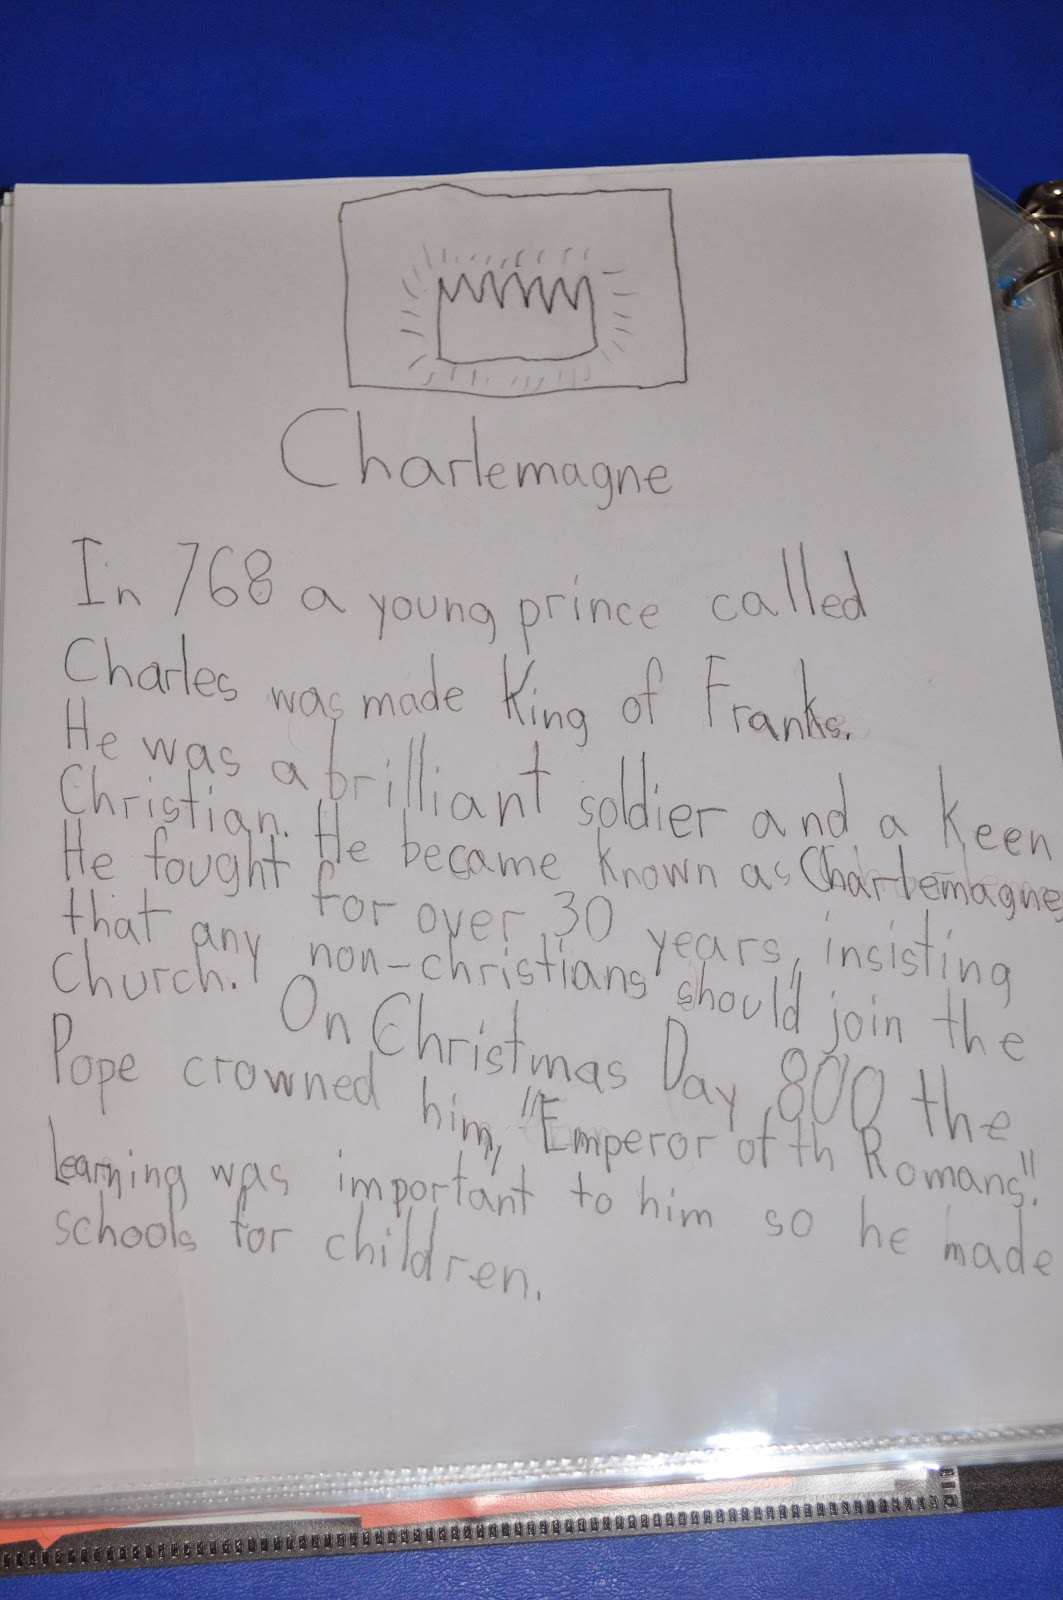 Charlemagne
In 768 a young prince called
Charles was made King of Franks.
He was a brilliant soldier and a keen
Christian. He became known as Charlemagne
He fought for over 30 years, insisting
that any non-christians should join the
Church. On Christmas Day, 800 the
Pope crowned him, "Emperor of th Romans".
Learning was important to him so he made
schools for children.